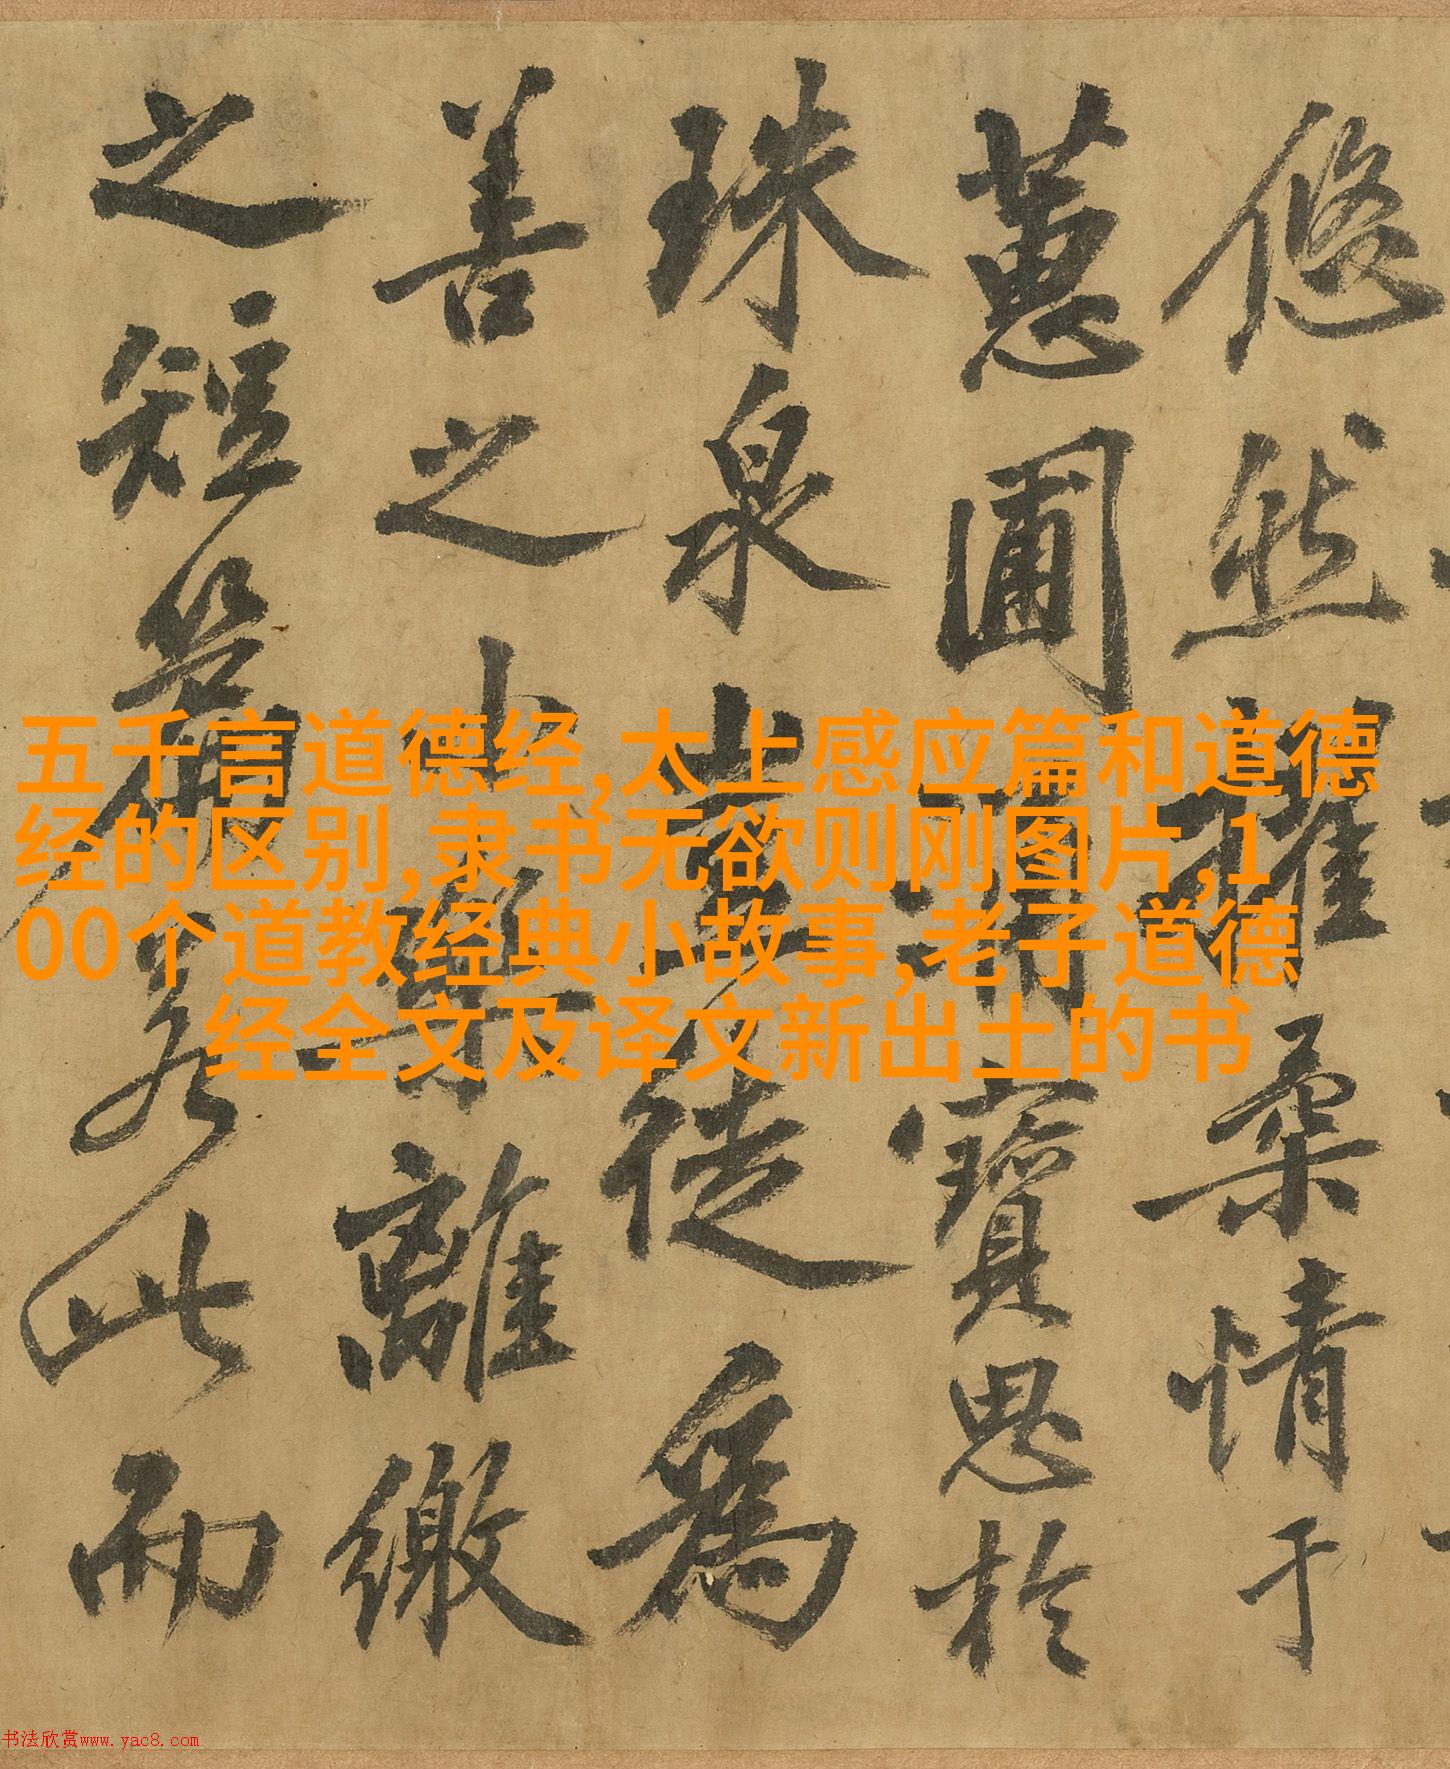 悠然擢柔情于
蕙圃涌寶思於
珠泉豈徒為
善之樂離繳
之短若此而
五千言道德经,太上感应篇和道德
经的区别,隶书无欲则刚图片,1
00个道教经典小故事,老子道德
经全文及译文新出土的书
书法欣赏www.yac8.com